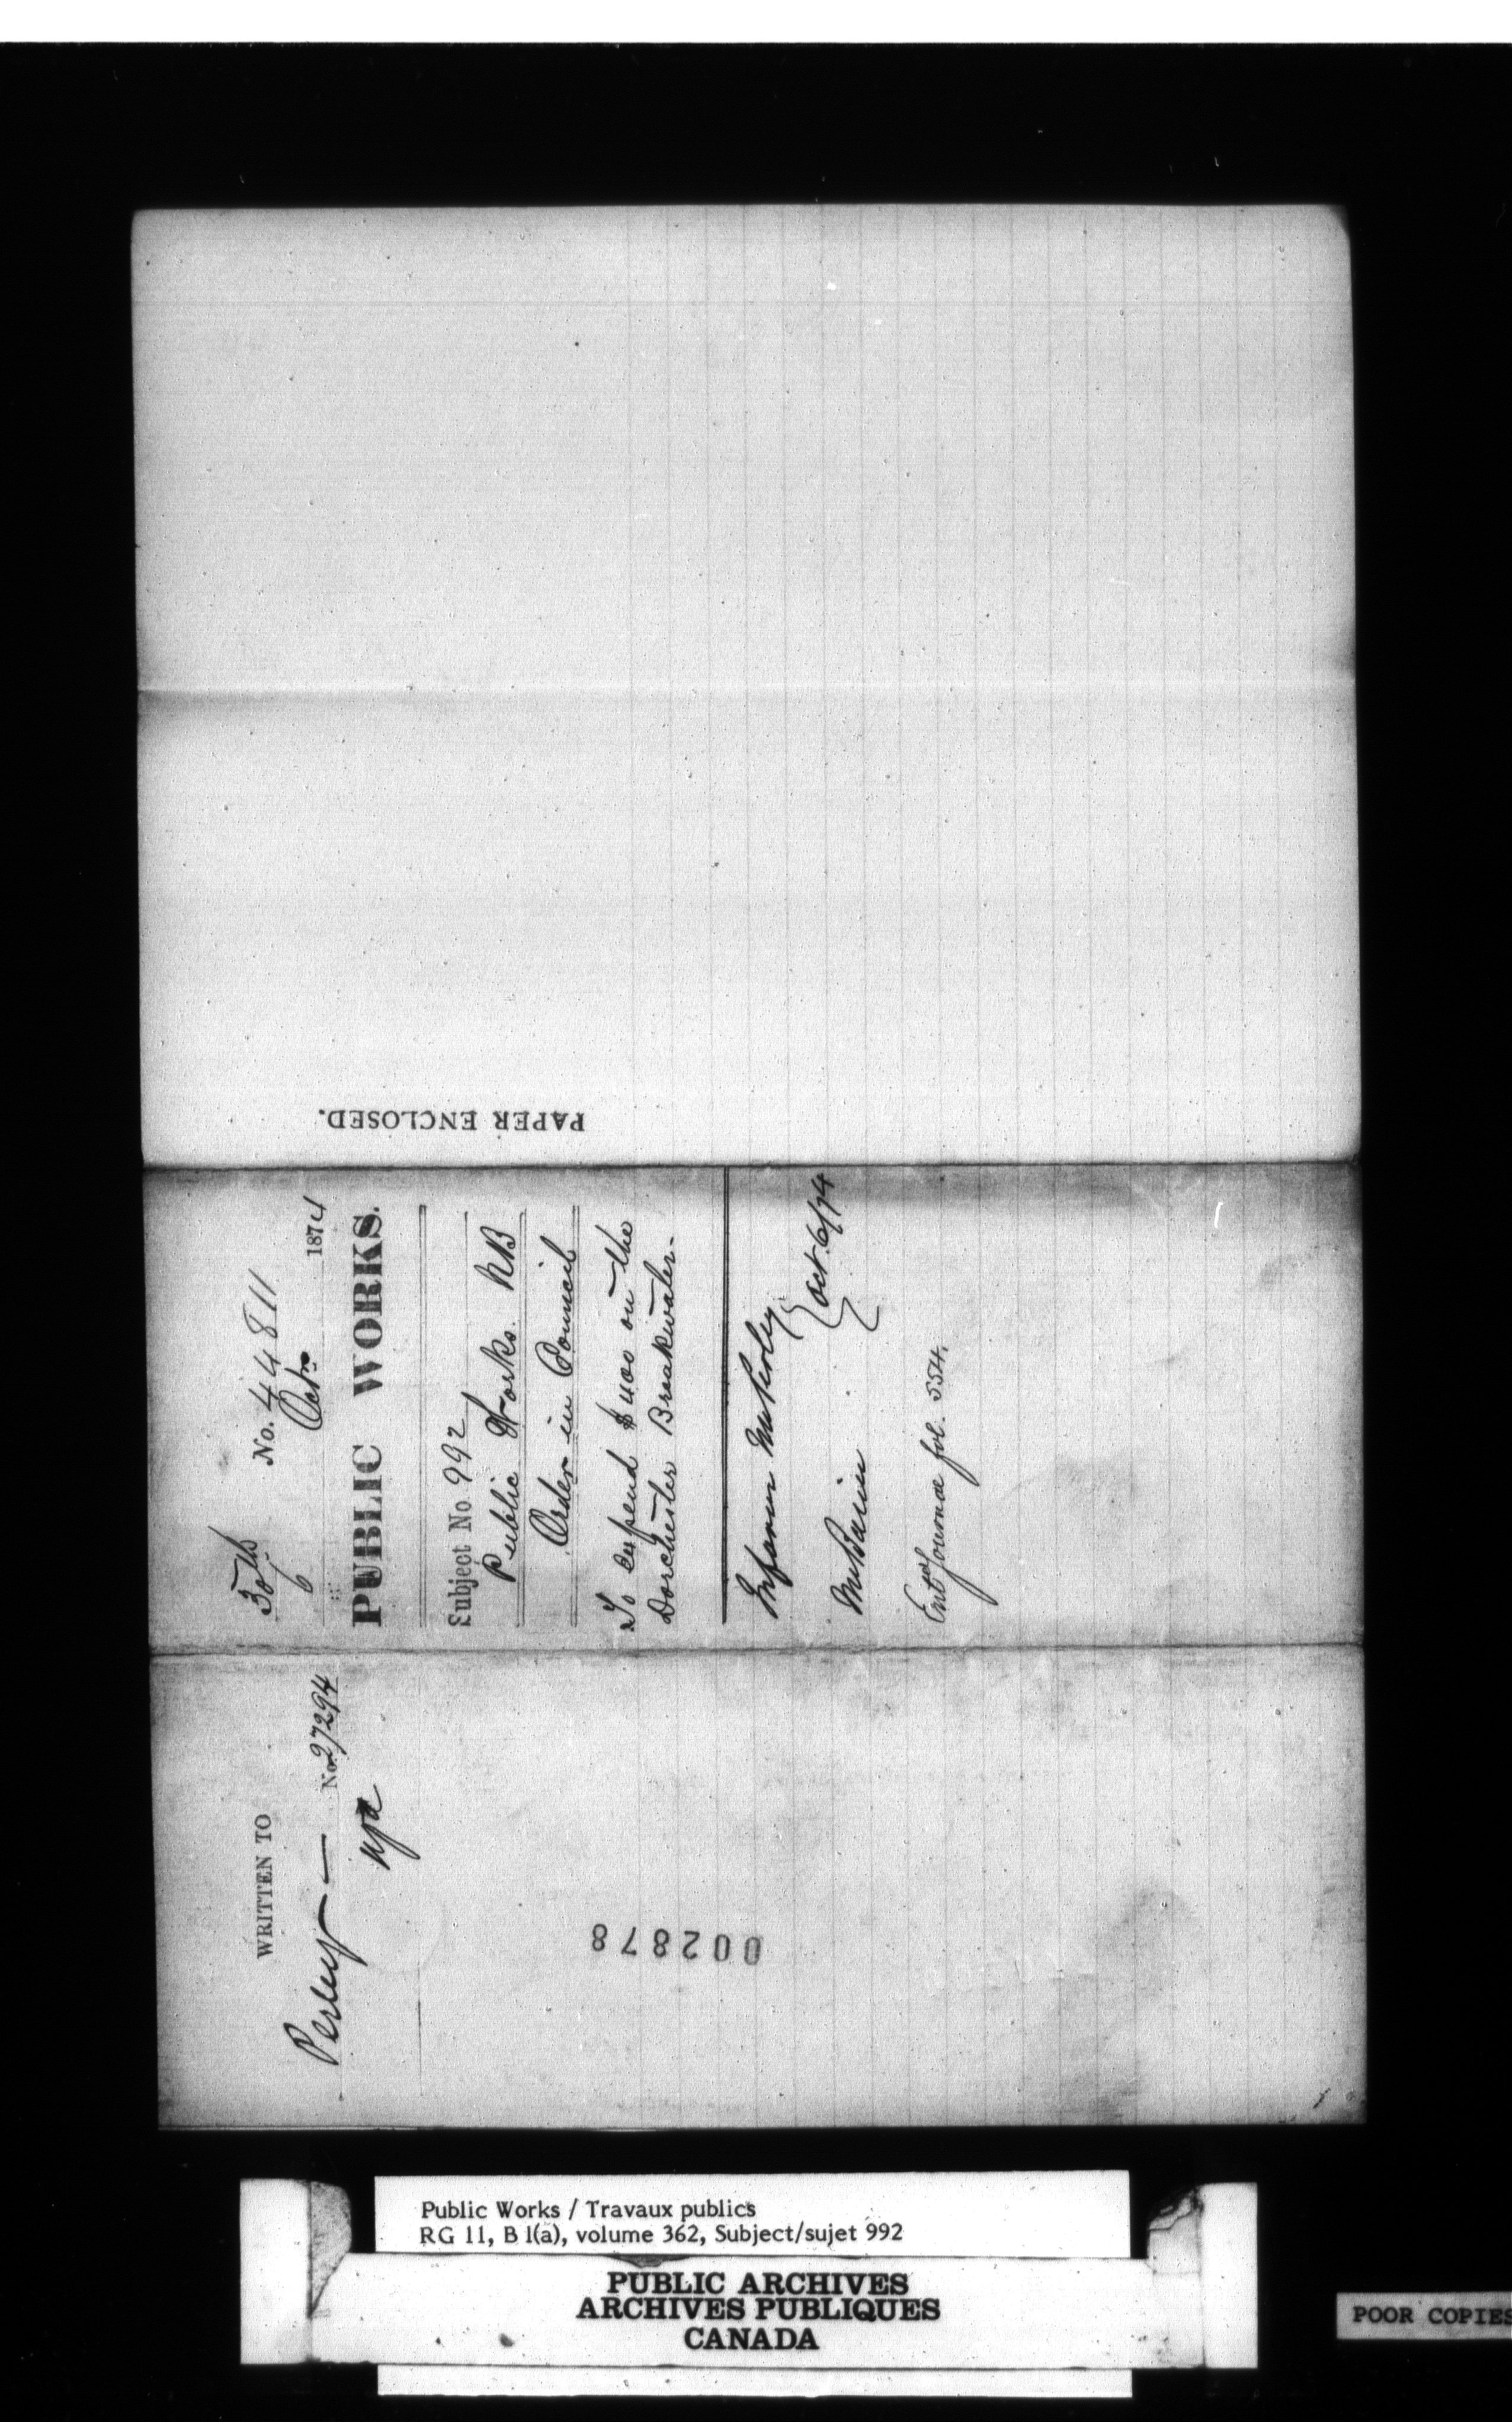 PAPER ENCLOSED.
30th
No. 44811
6 Octr 1874
PUBLIC WORKS.
Subject No 992
Public Works. NB
Order in Council
To expend $400 on the
Dorchester Breakwater-
Inform Mr Perley
Oct. 6/74
Entd Journal fol. 554.
WRITTEN TO
Perley — No. 27294
002878
Public Works / Travaux publics
RG 11, B 1(a), volume 362, Subject/sujet 992
PUBLIC ARCHIVES
ARCHIVES PUBLIQUES
CANADA
POOR COPIES